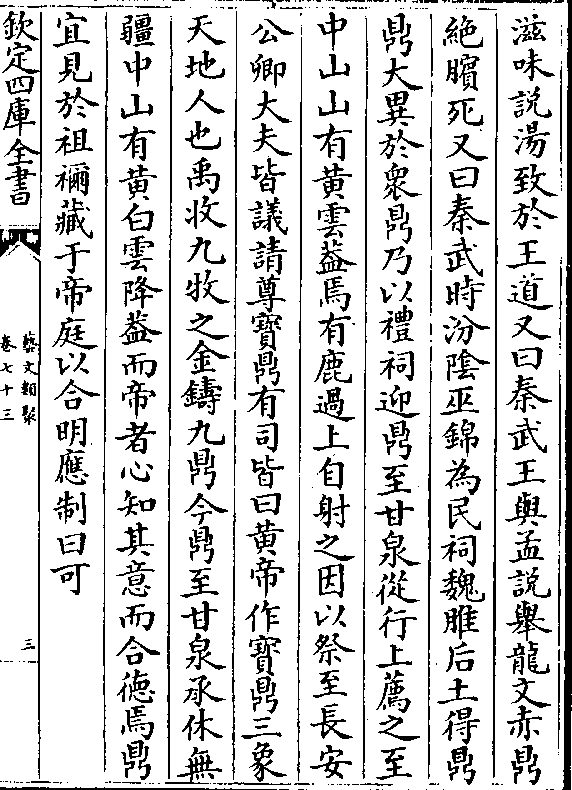 滋味說湯致於王道又曰秦武王與孟說舉龍文赤鼎
絕臏死又曰秦武時汾陰巫錦為民祠魏脽后土得鼎
鼎大異於衆鼎乃以禮祠迎鼎至甘泉從行上薦之至
中山山有黃雲葢焉有鹿過上自射之因以祭至長安
公卿大夫皆議請尊寶鼎有司皆曰黃帝作寶鼎三象
天地人也禹收九牧之金鑄九鼎今鼎至甘泉承休無
疆中山有黃白雲降葢而帝者心知其意而合徳焉鼎
宜見於祖禰藏于帝庭以合明應制曰可
欽定四庫全書
藝文類聚
卷七十三
三